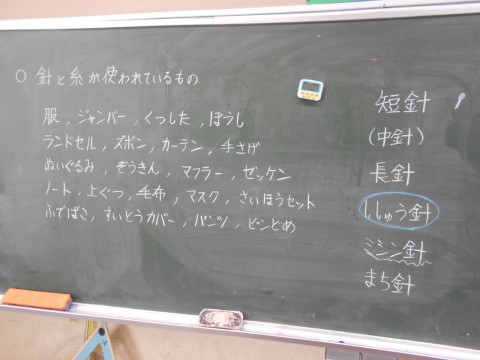 ○ 針と糸が使われているもの
服，ジャンバー，くつした，ぼうし
ランドセル，ズボン，カーテン，手さげ
ぬいぐるみ，ぞうきん，マフラー，ゼッケン
ノート，上ぐつ，毛布，マスク，さいほうセット
ふでばこ，すいとうカバー，パンツ，ピンどめ
短針
(中針)
長針
ししゅう針
ミシン針
まち針